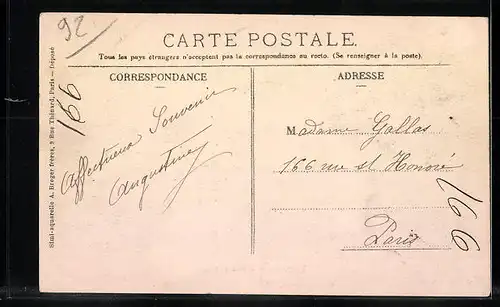 92
CARTE POSTALE.
Tous les pays étrangers n'acceptent pas la correspondance au recto. (Se renseigner à la poste).
CORRESPONDANCE
ADRESSE
166
Affectueux Souvenir
Augustine
Madame Gallas
166 rue st Honoré
Paris
166
Simi-aquarelle A. Breger frères, 9 Rue Thénard, Paris — Déposé